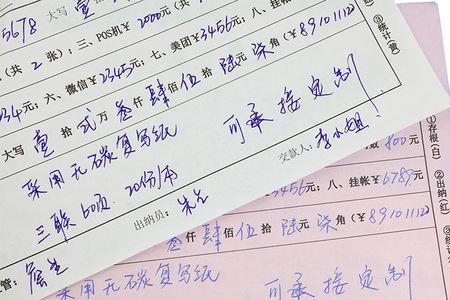 5678 大写 壹
(共 2 张); 三、POS机￥2000元; (共
234元; 六、微信￥2345元; 七、美团￥3456元; 八、挂
大写 壹 拾 贰 万 叁 仟 肆 佰 伍 拾 陆 元 柒 角 (￥89101112)
采用无碳复写纸 可承接定制
三联 60页. 20份/本
出纳员: 朱生 交款人: 李小姐!
管: 詹生
③统计(黄)
800元
①存根(白)
3456元; 八、挂帐￥6789元
②出纳(红)
叁 仟 肆 佰 伍 拾 陆 元 柒 角 (￥89101112)
③统计
采用无碳复写纸 可承接定制